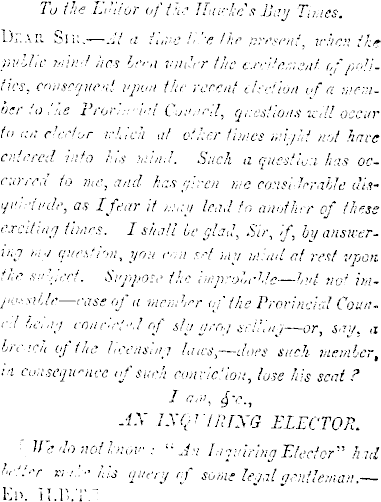 To the Editor of the Hawke's Bay Times.
DEAR SIR,—At a time like the present, when the
public mind has been under the excitement of poli-
tics, consequent upon the recent election of a mem-
ber to the Provincial Council, questions will occur
to an elector which at other times might not have
entered into his mind. Such a question has oc-
curred to me, and has given me considerable dis-
quietude, as I fear it may lead to another of these
exciting times. I shall be glad, Sir, if, by answer-
ing my question, you can set my mind at rest upon
the subject. Suppose the improbable—but not im-
possible—case of a member of the Provincial Coun-
cil being convicted of sly grog selling—or, say, a
breach of the licensing laws,—does such member,
in consequence of such conviction, lose his seat?
I am, &c.,
AN INQUIRING ELECTOR.
[We do not know: "An Inquiring Elector" had
better make his query of some legal gentleman.—
ED. H.B.T.]